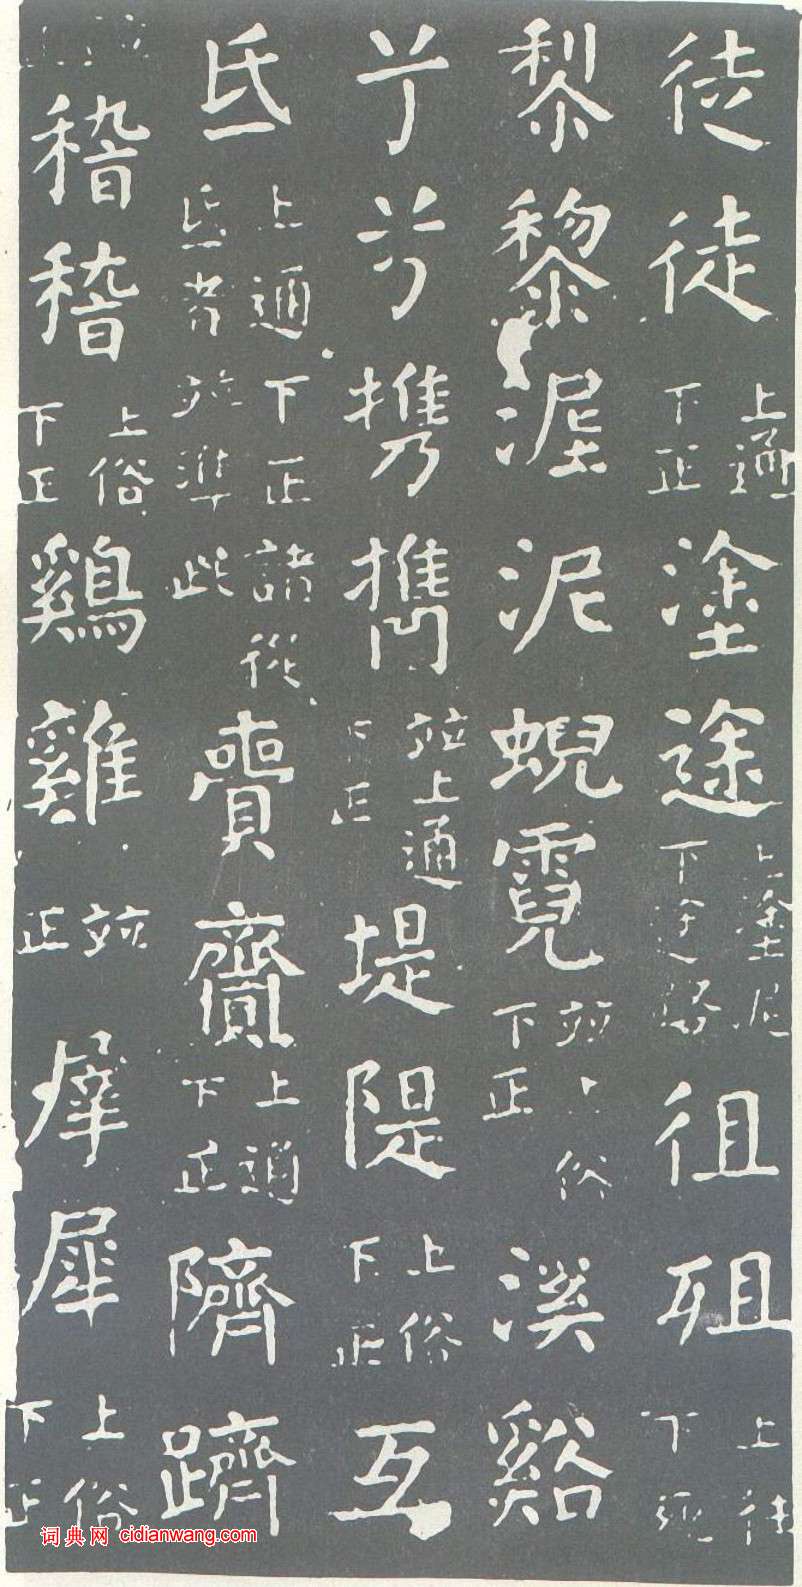 徒徒上通下正塗途上塗泥下途路徂殂上往下死
黎黎泥泥蜺霓並上俗下正溪谿
兮兮携㩦並上通下正堤隄上俗下正互
氐上通下正諸從氐者並準此賷齎上通下正隮躋
並正稽稽上俗下正鷄雞並正犀上俗下正
词典网 cidianwang.com